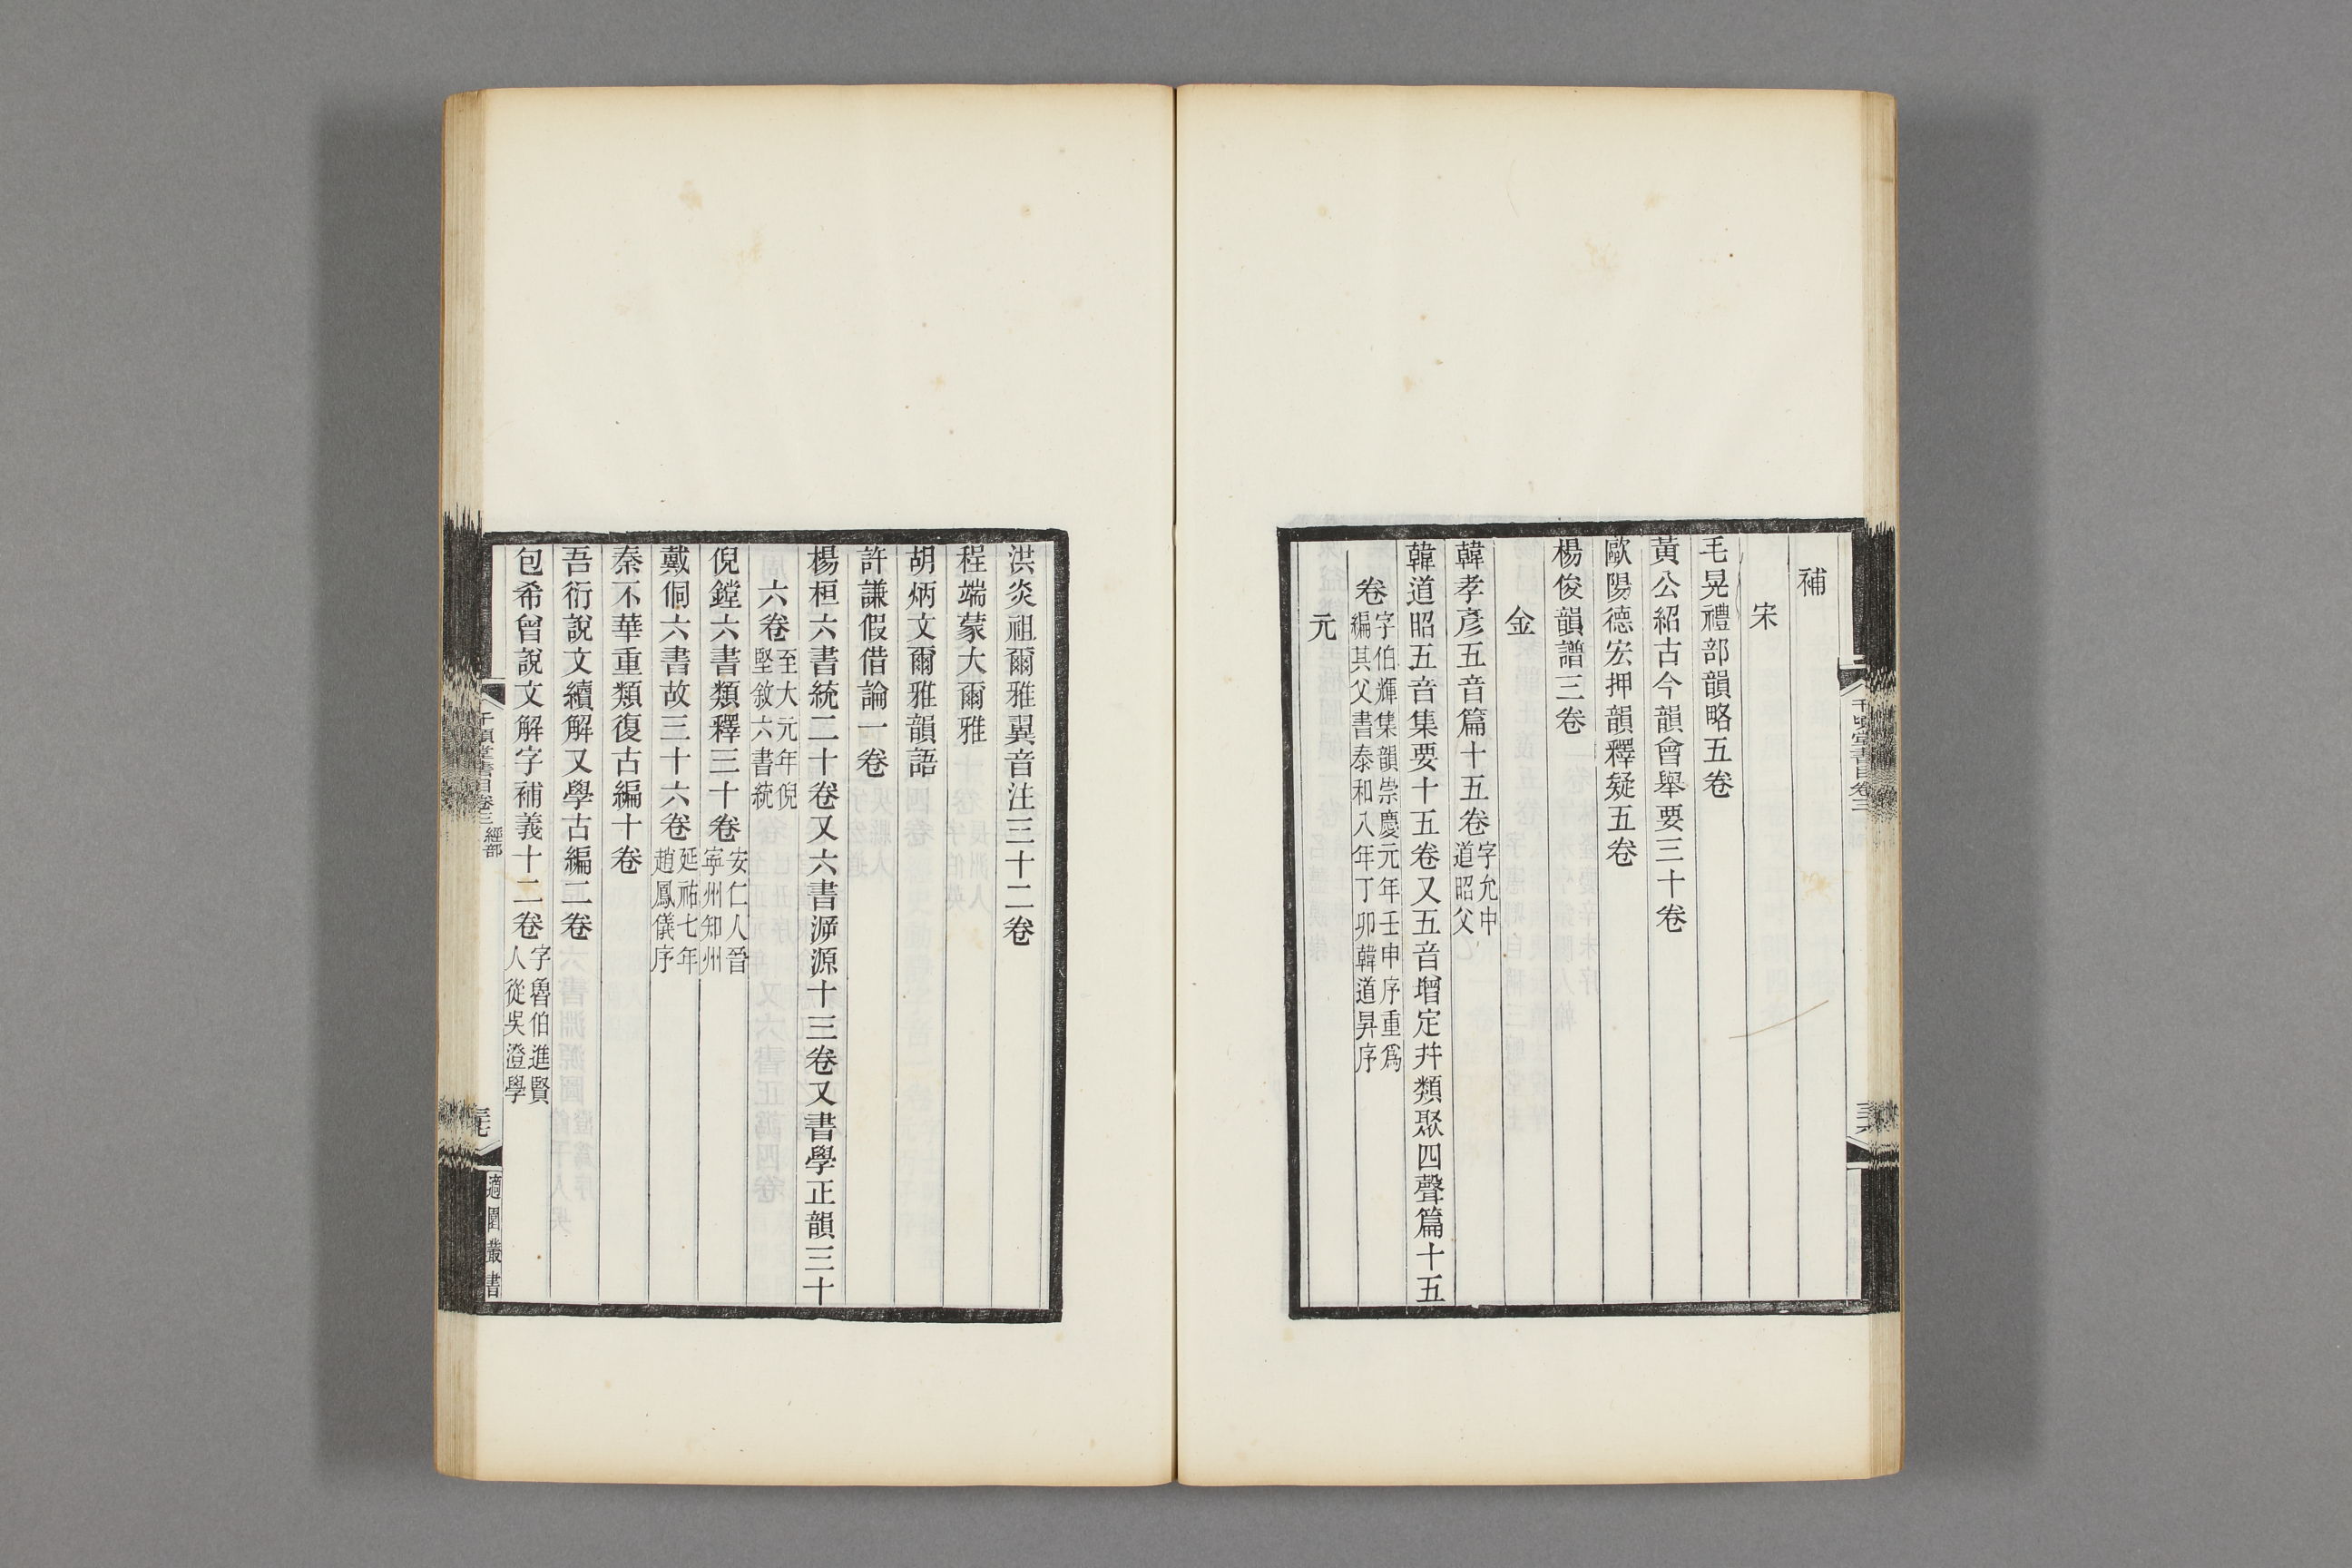 補
宋
毛晃禮部韻略五卷
黃公紹古今韻會舉要三十卷
歐陽德宏押韻釋疑五卷
楊俊韻譜三卷
金
韓孝彥五音篇十五卷字允中
道昭父
韓道昭五音集要十五卷又五音增定幷類聚四聲篇十五
卷字伯輝集韻崇慶元年壬申序重爲
編其父書泰和八年丁卯韓道昇序
元
千頃堂書目卷三
洪炎祖爾雅翼音注三十二卷
程端蒙大爾雅
胡炳文爾雅韻語
許謙假借論一卷
楊桓六書統二十卷又六書溯源十三卷又書學正韻三十
六卷至大元年倪
堅敘六書統
倪鏜六書類釋三十卷安仁人晉
寧州知州
戴侗六書故三十六卷延祐七年
趙鳳儀序
泰不華重類復古編十卷
吾衍說文續解又學古編二卷
包希曾說文解字補義十二卷字魯伯進賢
人從吳澄學
千頃堂書目卷三 經部
適園叢書